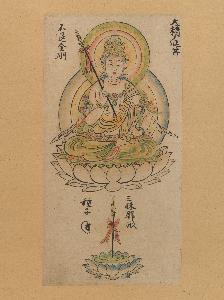 大精進菩薩
不退金剛
三昧耶形
種子